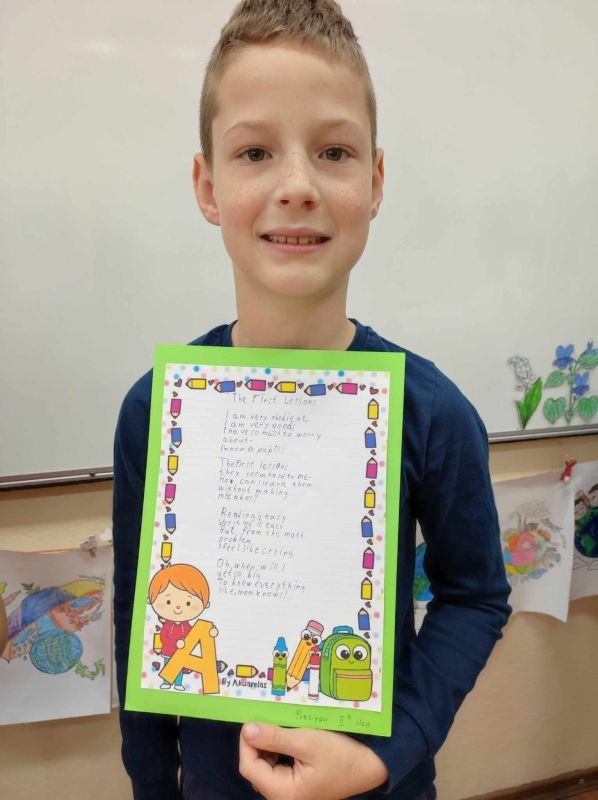 The First Lessons
I am very obedient,
I am very good,
I have so much to worry
about-
I'm now a pupil!
The first lessons
they seem hard to me-
How can I learn them
without making
mistakes?
Reading is easy
Writing is easy
But from this math
problem
I feel like crying
Oh, when, will I
get so big
To know everything
like, mom knows!
A
By Akuarelas
II class